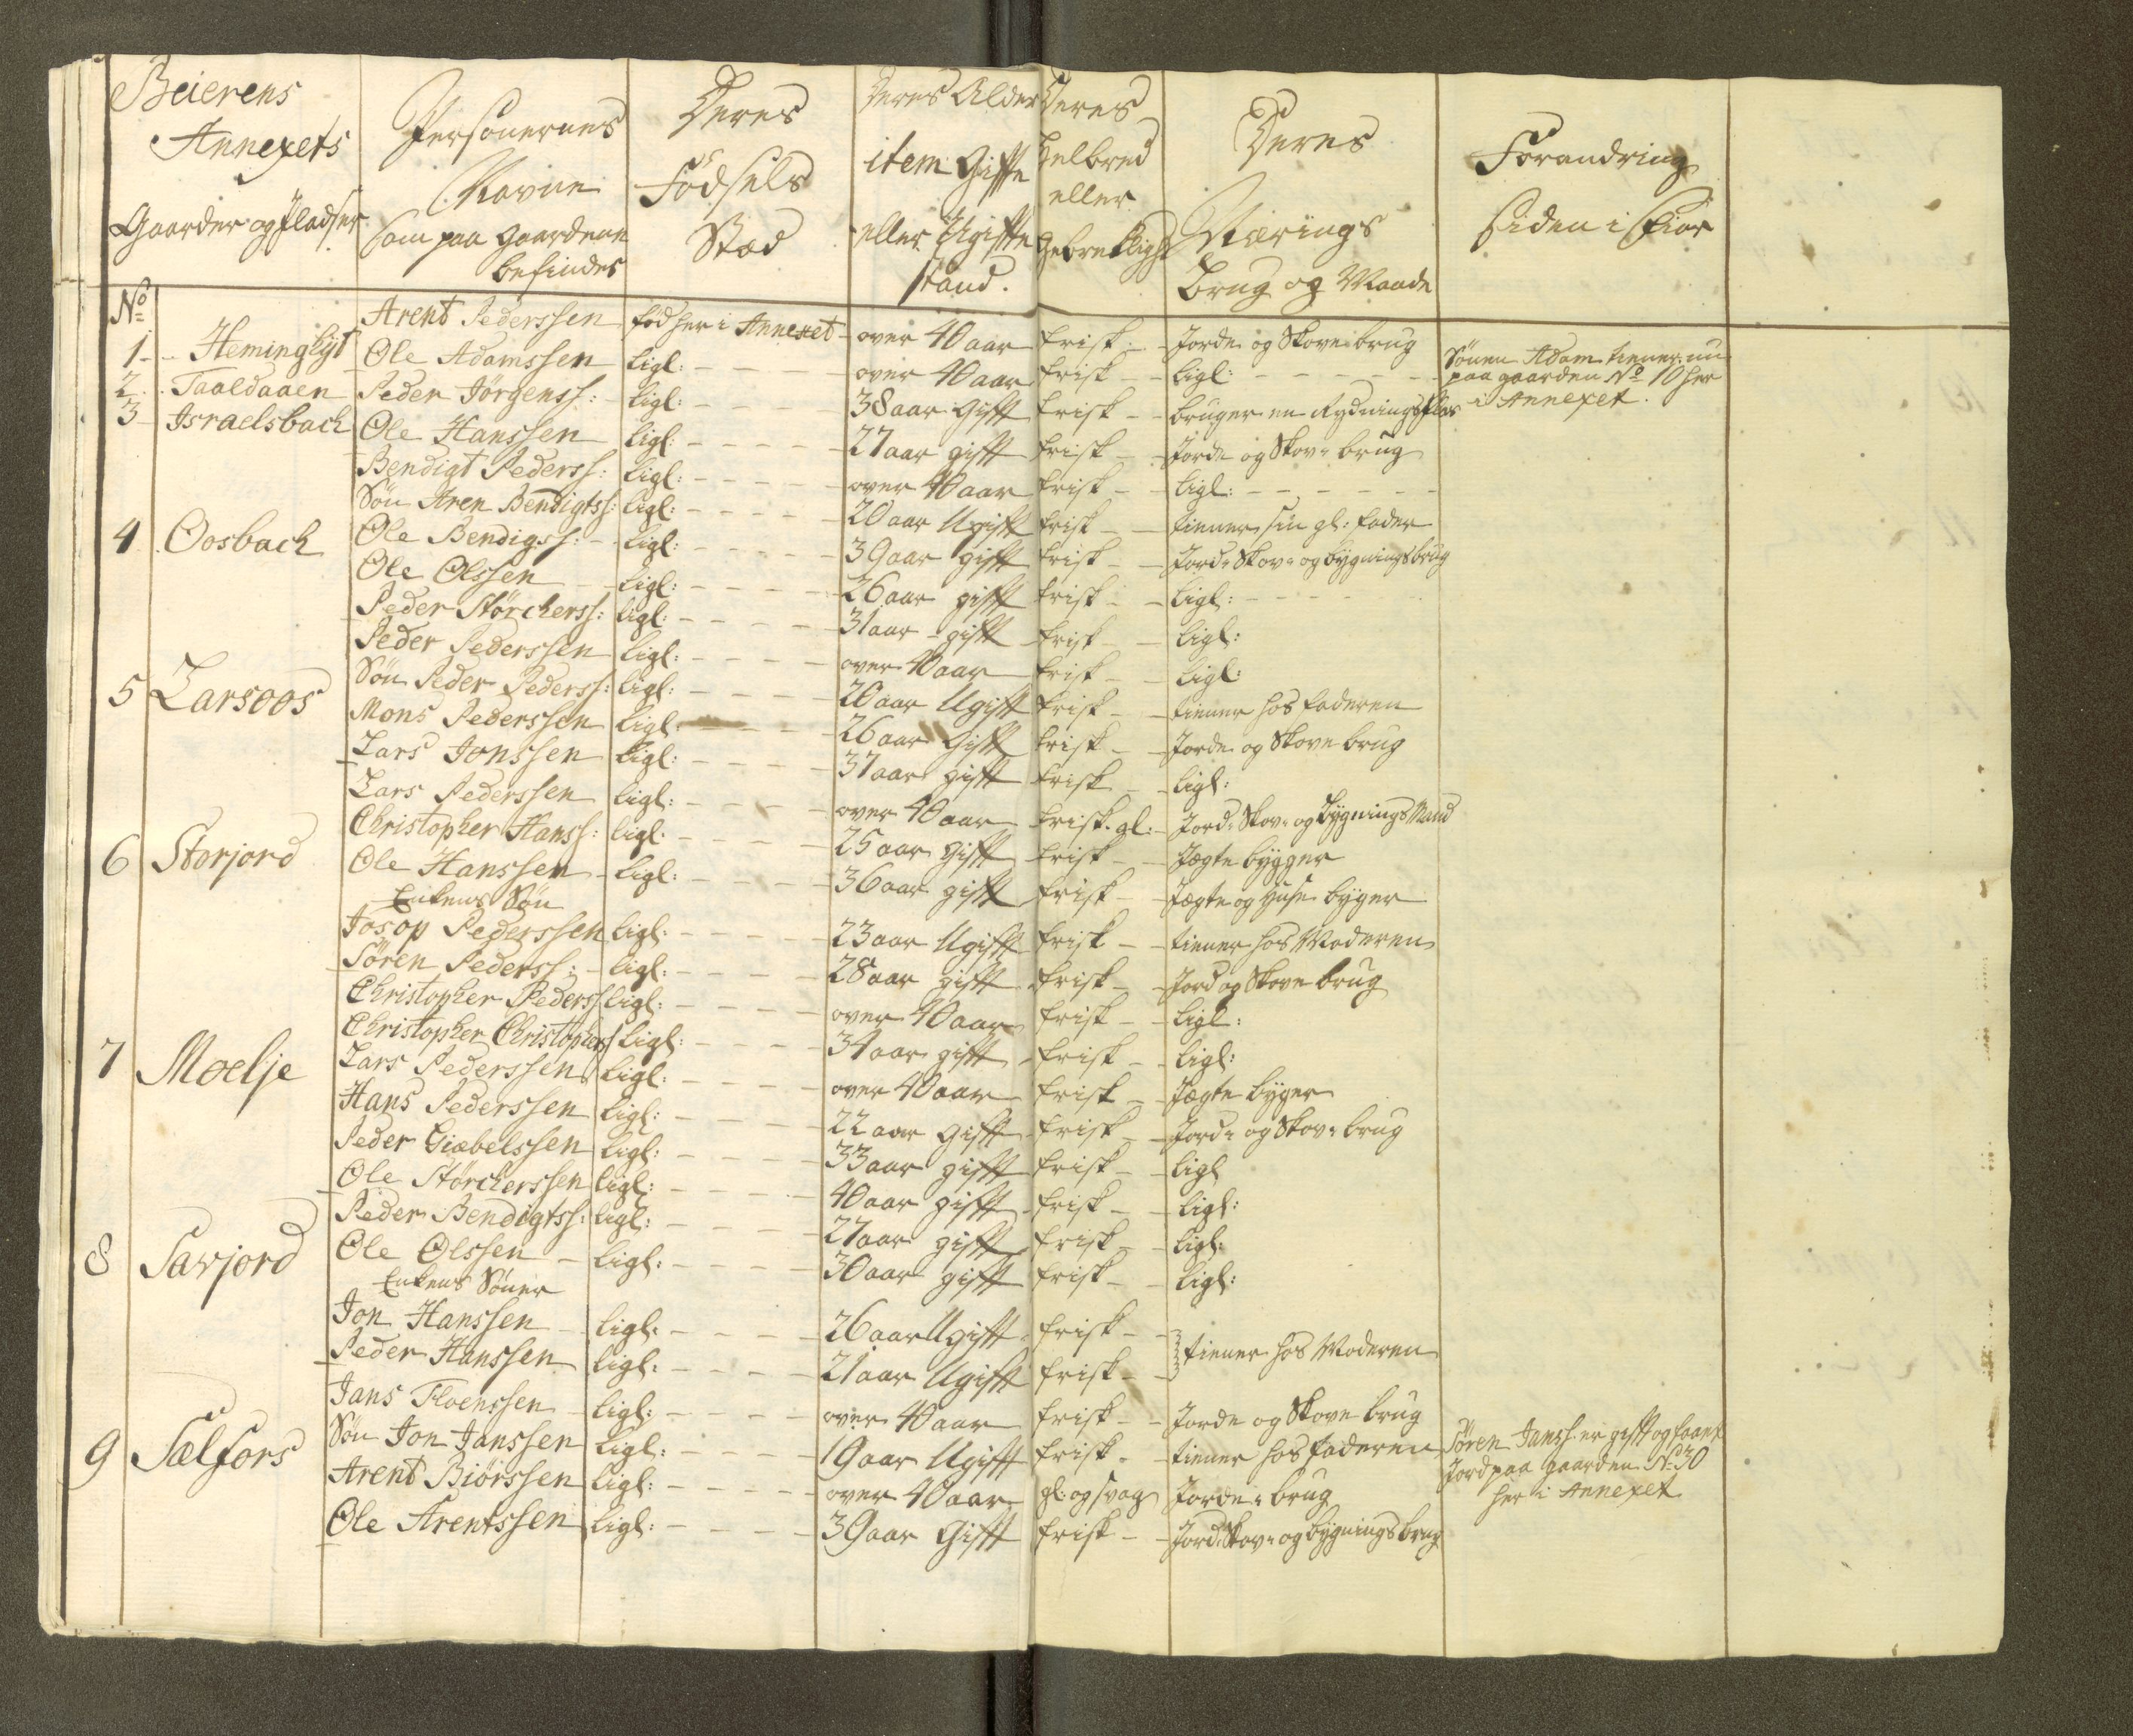 Beierens Annexets Gaarder og Pladser | Personernes Navne som paa Gaardene befindes | Deres Födsels Stæd | Deres Alder item Gifte eller Ugifte stand. | Deres Helbred eller | Deres Nærings Brug og Maade | Forandring siden i Fior
No
Arent Pederssen | föd her i Annexet | over 40 aar | frisk | Jorde og Skove brug
1 Hemingligt | Ole Adamssen | ligl: | over 40 aar | frisk | ligl: | Sönen Adam tiener nu paa gaarden No 10 her i Annexet.
2 Taaldaaen | Peder Jörgenss: | ligl: | 38 aar Gift | frisk | bruger en Rydningsplas
3 Israelsbach | Ole Hanssen | ligl: | 27 aar gift | frisk | Jorde og Skov- brug
Bendigt Pederss: | ligl: | over 40 aar | frisk | ligl:
Sön Aren Bendigtss: | ligl: | 20 aar Ugift | frisk | tiener sin gl: fader
4 Oosbach | Ole Bendigss: | ligl: | 39 aar gift | frisk | Jord- Skov- og bygningsbrug
Ole Olssen | ligl: | 26 aar gift | frisk | ligl:
Peder Störcherss: | ligl: | 31 aar gift | frisk | ligl:
Peder Pederssen | ligl: | over 40 aar | frisk | ligl:
5 Larsoos | Sön Peder Pederss: | ligl: | 20 aar Ugift | frisk | tiener hos faderen
Mons Pederssen | ligl: | 26 aar Gift | frisk | Jorde og Skove brug
Lars Jonssen | ligl: | 37 aar gift | frisk | ligl:
Lars Pederssen | ligl: | over 40 aar | frisk. gl: | Jord- Skov- og bygnings Mand
Christopher Hanss: | ligl: | 25 aar gift | frisk | Jægte bygger
6 Storjord | Ole Hanssen | ligl: | 36 aar gift | frisk | Jægte og huse byger
Enkens Sön
Josop Pederssen | ligl: | 23 aar Ugift | frisk | tiener hos Moderen
Sören Pederss: | ligl: | 28 aar gift | frisk | Jord og Skove brug
Christopher Pederss | ligl: | over 40 aar | frisk | ligl:
Christopher Christophers | ligl: | 34 aar gift | frisk | ligl:
7 Moelje | Lars Pederssen | ligl: | over 40 aar | frisk | Jægte byger
Hans Pederssen | ligl: | 22 aar Gift | frisk | Jord- og Skov- brug
Peder Giæbelssen | ligl: | 33 aar gift | frisk | ligl
Ole Störcherssen | ligl: | 40 aar gift | frisk | ligl:
Peder Bendigtss: | ligl: | 27 aar gift | frisk | ligl:
8 Savjord | Ole Olssen | ligl: | 30 aar gift | frisk | ligl:
Enkens Söner
Jon Hanssen | ligl: | 26 aar Ugift | frisk
Peder Hanssen | ligl: | 21 aar Ugift | frisk | tiener hos Moderen
Jans Floenssen | ligl: | over 40 aar | frisk | Jorde og Skove brug
9 Sælfors | Sön Jon Janssen | ligl: | 19 aar Ugift | frisk | tiener hos faderen | Sören Janss: er gift og faaet Jord paa gaarden No 30 her i Annexet
Arent Biörssen | ligl: | over 40 aar | gl: og svag | Jorde- brug
Ole Arentssen | ligl: | 39 aar Gift | frisk | Jord- Skov- og bygnings brug